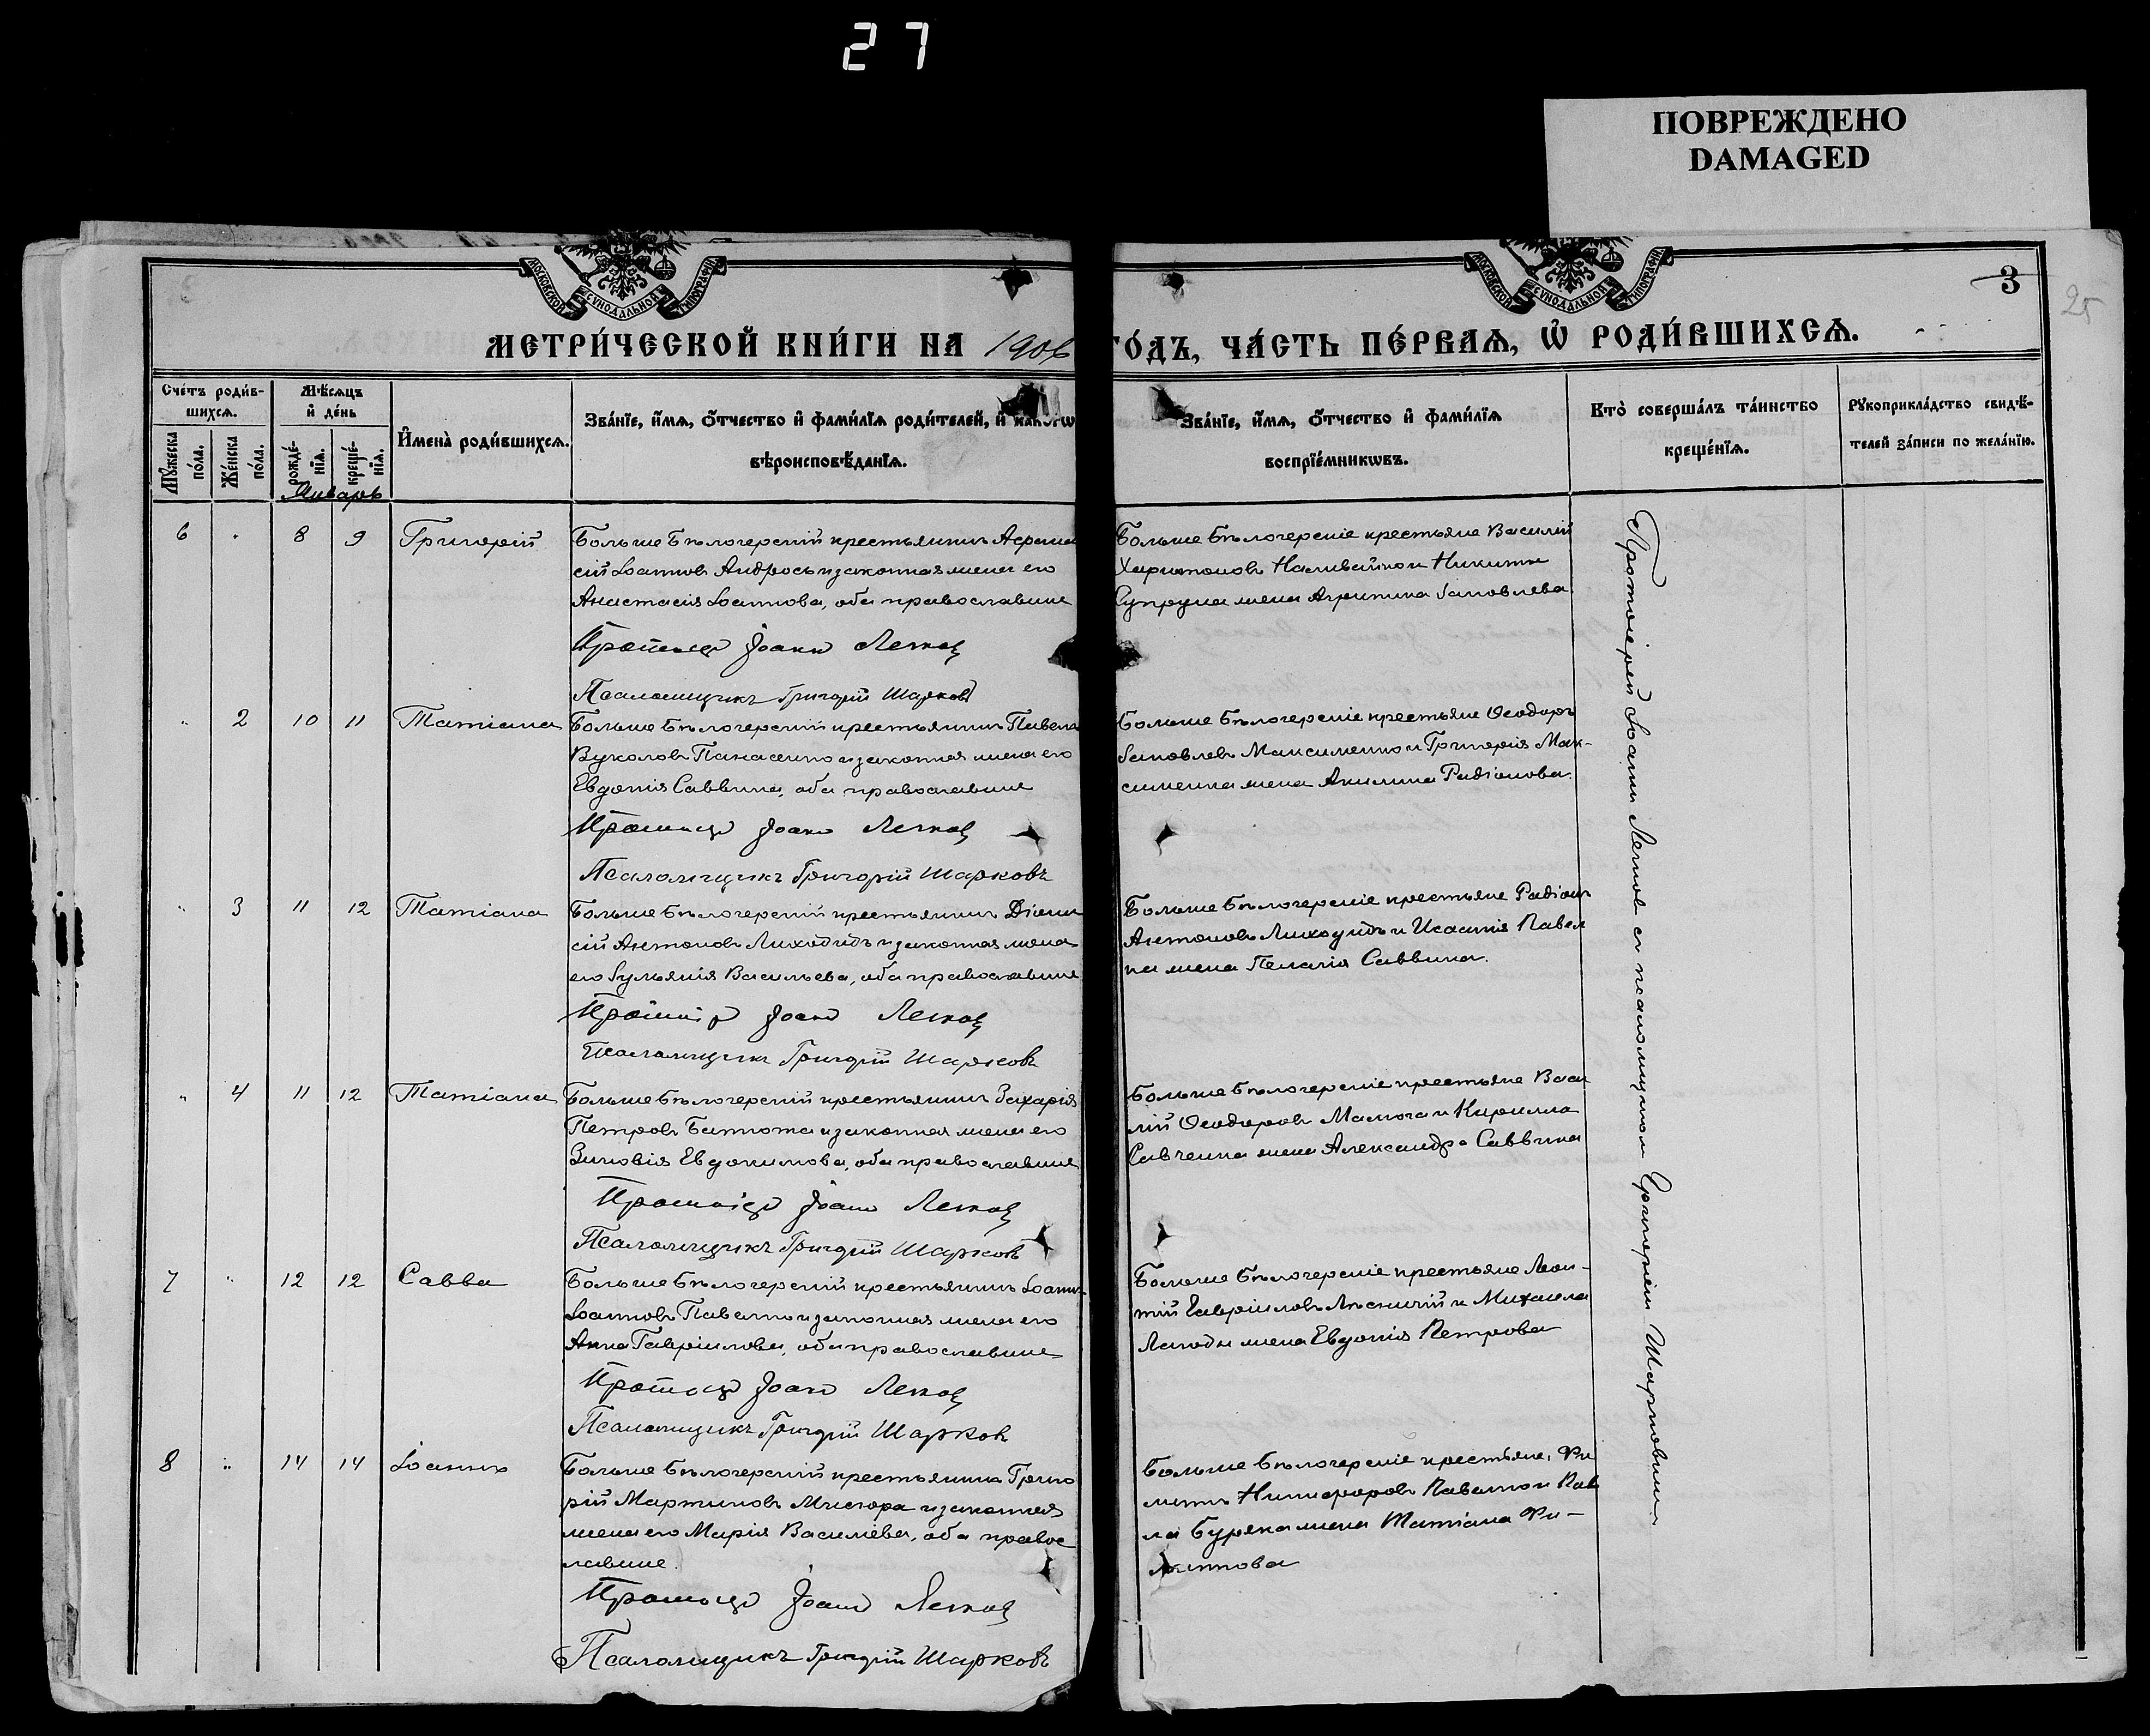 27
ПОВРЕЖДЕНО
DAMAGED
МОСКОВСКОЙ СѴНОДАЛЬНОЙ ТИПОГРАФІИ
МОСКОВСКОЙ СѴНОДАЛЬНОЙ ТИПОГРАФІИ
3
25
МЕТРИ́ЧЕСКОЙ КНИ́ГИ НА 1906
ГО́ДЪ, ЧА́СТЬ ПЕ́РВАѦ, Ѡ҆ РОДИ́ВШИХСѦ.
Сче́тъ роди́в-
шихсѧ.
Мꙋ́жеска по́ла.
Же́нска по́ла.
Мѣ́сѧцъ
и҆ де́нь
рожде́-нїѧ.
креще́-нїѧ.
И҆мена̀ роди́вшихсѧ.
Зва́нїе, и҆́мѧ, ѻ҆́тчество и҆ фами́лїѧ роди́телей, и҆
вѣроисповѣ́данїѧ.
Зва́нїе, и҆́мѧ, ѻ҆́тчество и҆ фами́лїѧ
воспрїе́мникѡвъ.
Кто̀ соверша́лъ та́инство
креще́нїѧ.
Рꙋкоприкла́дство свидѣ́-
телей за́писи по жела́нїю.
Январь
6 " 8 9 Григорій
Больше Бѣлогерскій крестьянинъ Афана
сій Іоанновъ Андрось и законная жена его
Анастасія Іоаннова, оба православные
Протоіер Іоанн Легков
Псаломщикъ Григорій Шарковъ
Больше Бѣлогерскіе крестьяне Василій
Харитоновъ Наливайко и Никиты
Супруна жена Агрипина Іаковлева.
" 2 10 11 Татіана
Больше Бѣлогерскій крестьянинъ Павелъ
Вуколовъ Панасенко и законная жена его
Евдокія Саввина, оба православные
Протоіер Іоанн Легков
Псаломщикъ Григорій Шарковъ
Больше Бѣлогерскіе крестьяне Ѳеодоръ
Іаковлевъ Максименко и Григорія Мак-
сименка жена Акилина Радіонова.
" 3 11 12 Татіана
Больше Бѣлогерскій крестьянинъ Діони
сій Антоновъ Лиходидъ и законная жена
его Іуліанія Васильева, оба православные
Протоіер Іоанн Легков
Псаломщикъ Григорій Шарковъ
Больше Бѣлогерскіе крестьяне Радіонъ
Антоновъ Лиходидъ и Исаакія Павел
ка жена Пелагія Саввина.
" 4 11 12 Татіана
Больше Бѣлогерскій крестьянинъ Захарія
Петровъ и законная жена его
Зиновія Евдокимова, оба православные
Протоіер Іоанн Легков
Псаломщикъ Григорій Шарковъ
Больше Бѣлогерскіе крестьяне Васи
лій Ѳеодоровъ и Кирилла
Савченка жена Александра Саввина
7 " 12 12 Савва
Больше Бѣлогерскій крестьянинъ Іоаннъ
Іоанновъ Павелко и законная жена его
Анна Гавріилова, оба православные
Протоіер Іоанн Легков
Псаломщикъ Григорій Шарковъ
Больше Бѣлогерскіе крестьяне Леон-
тій Гавріиловъ Лѣсничій и Михаила
Лагоды жена Евдокія Петрова
8 " 14 14 Іоаннъ
Больше Бѣлогерскій крестьянина Григо
рій Мартиновъ и законная
жена его Марія Василіева, оба правос
лавные.
Протоіер Іоанн Легков
Псаломщикъ Григорій Шарковъ
Больше Бѣлогерскіе крестьяне, Фи
липъ Никифоровъ Павелко и Пав
ла Буряка жена Татіана Фи-
липпова
Протоіерей Іоаннъ Легковъ съ псаломщикомъ Григоріемъ Шарковымъ